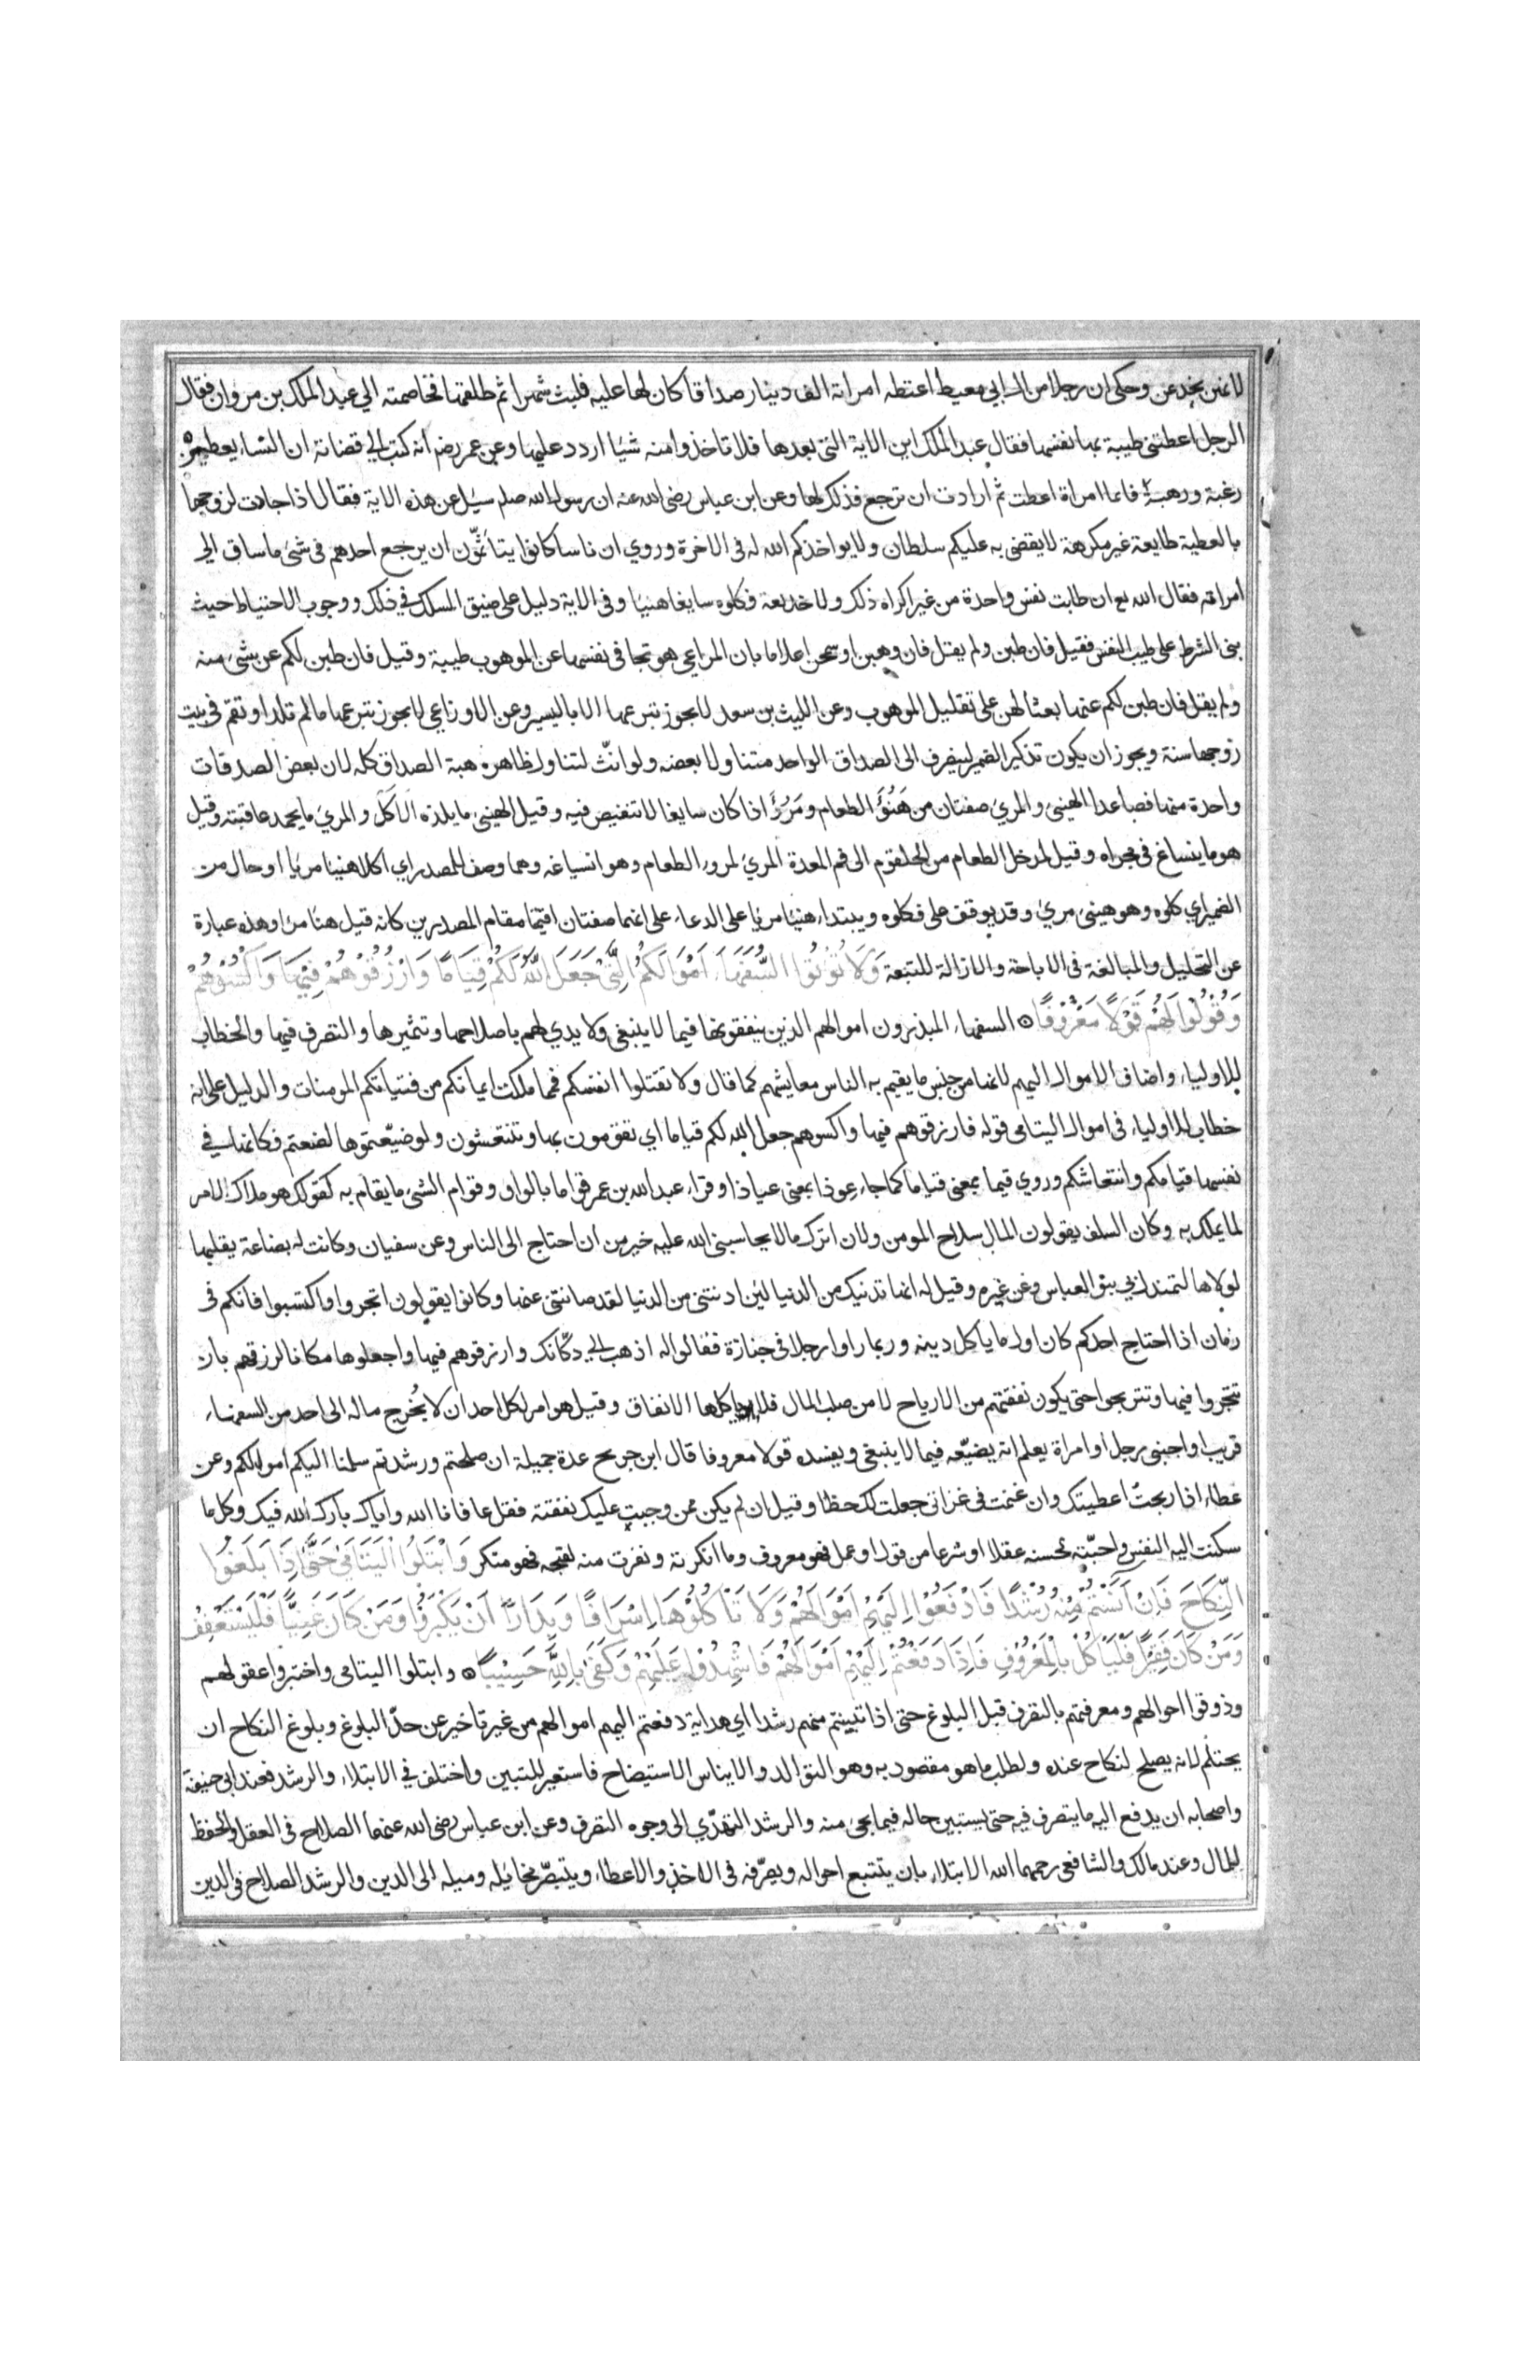 لانهن يخدعن وحكى ان رجلا من ال ابي معيط اعتطه امراته الف دينار صداقا كان لها عليه فلبث شهرا ثم طلقها فخاصمته الي عبد الملك بن مروان فقال
الرجل اعطتني طيبة بها نفسها فقال عبد الملك اين الاية التي بعدها فلا تاخذوا منه شيا اردد عليها وعن عمر رضه انه كتب الي قضاته ان النساء يعطين
رغبة ورهبة فايما امراة اعطت ثم ارادت ان ترجع فذلك لها وعن ابن عباس رضى الله عنه ان رسول الله صلم سيل عن هذه الاية فقال اذا جادت لزوجها
بالعطية طايعة غير مكرهة لا يقضى به عليكم سلطان ولا يواخذكم الله له فى الاخرة وروي ان ناسا كانوا يتاثّمون ان يرجع احدهم فى شئ ما ساق الى
امراته فقال الله تع ان طابت نفس واحدة من غير اكراه ذلك ولا خديعة فكلوه سايغا هنيا وفى الاية دليل على ضيق المسلك في ذلك ووجوب الاحتياط حيث
بنى الشرط على طيب النفس فقيل فان طبن ولم يقل فان وهبن او سمحن اعلاما بان المراعي هو تجافى نفسها عن الموهوب طيبة وقيل فان طبن لكم عن شئ منه
ولم يقل فان طبن لكم عنها بعثا لهن على تقليل الموهوب وعن الليث بن سعد لا يجوز تبرعها الا باليسير وعن الاوزاعي لا يجوز تبرعها مالم تلد او تقم فى بيت
زوجها سنة ويجوز ان يكون تذكير الضمير لينصرف الى الصداق الواحد متناولا بعضه ولو انّث لتناول ظاهره هبة الصداق كله لان بعض الصدقات
واحدة منها فصاعدا الهنئ والمرئ صفتان من هَنُؤَ الطعام ومَرُؤَ اذا كان سايغا لا تنغيص فيه وقيل الهنئ ما يلذه الآكل والمرئ ما يحمد عاقبته وقيل
هو ما ينساغ فى مجراه وقيل لمدخل الطعام من الحلقوم الى فم المعدة المرئ لمرور الطعام وهو انسياغه وهما وصف للمصدر اي اكلا هنيا مريا او حال من
الضمير اي كلوه وهو هنئ مرئ وقد يوقف على فكلوه ويبتداء هنيا مريا على الدعاء على انهما صفتان اقيمتا مقام المصدرين كانه قيل هنا مرا وهذه عبارة
عن التحليل والمبالغة فى الاباحة والازالة للتبعة وَلَا تُؤْتُوا السُّفَهَاءَ اَمْوَالَكُمُ الَّتِي جَعَلَ اللَّهُ لَكُمْ قِيَامًا وَارْزُقُوهُمْ فِيهَا وَاكْسُوهُمْ
وَقُولُوا لَهُمْ قَوْلًا مَعْرُوفًا السفهاء المبذرون اموالهم الذين ينفقونها فيما لا ينبغى ولا يدي لهم باصلاحها وتثميرها والتصرف فيها والخطاب
للاولياء واضاف الاموال اليهم لانها من جنس ما يقيم به الناس معايشهم كما قال ولا تقتلوا انفسكم فمما ملكت ايمانكم من فتياتكم المومنات والدليل على انه
خطاب للاولياء فى اموال اليتامى قوله فارزقوهم فيها واكسوهم جعل الله لكم قياما اي تقومون بها وتنتعشون ولو ضيّعتموها لضعتم فكانها في
نفسها قيامكم وانتعاشكم وروي قيما بمعنى قياما كما جاء عوذا بمعنى عياذا وقراء عبد الله بن عمر قواما بالواو وقوام الشئ ما يقام به كقولك هو ملاك الامر
لما يملك به وكان السلف يقولون المال سلاح المومن ولان اترك مالا يحاسبنى الله عليه خير من ان احتاج الى الناس وعن سفيان وكانت له بضاعة يقلبها
لولاها لتمندل بي بنو العباس وعن غيره وقيل له انها تدنيك من الدنيا لين ادنتنى من الدنيا لقد صانتنى عنها وكانوا يقولون اتجروا واكتسبوا فانكم فى
زمان اذا احتاج احدكم كان اول ما ياكل دينه وربما راوا رجلا فى جنازة فقالوا له اذهب الي دكّانك وارزقوهم فيها واجعلوها مكانا لرزقهم بان
تتجروا فيها وتتربحوا حتى يكون نفقتهم من الارباح لا من صلب المال فلا ياكلها الانفاق وقيل هو امر لكل احد ان لا يُخرج ماله الى احد من السفهاء
قريب او اجنبى رجل او امراة يعلم انه يضيّعه فيما لا ينبغى ويفسده قولا معروفا قال ابن جريح عدة جميلة ان صلحتم ورشدتم سلمنا اليكم اموالكم وعن
عطاء اذا ربحتُ اعطيتك وان غنمت فى غزاتى جعلت لك حظا وقيل ان لم يكن ممن وجبت عليك نفقته فقل عافانا الله واياك بارك الله فيك وكل ما
سكنت اليه النفس واحبّته لحسنه عقلا او شرعا من قول او عمل فهو معروف وما انكرته ونفرت منه لقبحه فهو منكر وَابْتَلُوا الْيَتَامَىٰ حَتَّىٰ اِذَا بَلَغُوا
النِّكَاحَ فَاِنْ آنَسْتُمْ مِنْهُمْ رُشْدًا فَادْفَعُوا اِلَيْهِمْ اَمْوَالَهُمْ وَلَا تَأْكُلُوهَا اِسْرَافًا وَبِدَارًا اَنْ يَكْبَرُوا وَمَنْ كَانَ غَنِيًّا فَلْيَسْتَعْفِفْ
وَمَنْ كَانَ فَقِيرًا فَلْيَأْكُلْ بِالْمَعْرُوفِ فَاِذَا دَفَعْتُمْ اِلَيْهِمْ اَمْوَالَهُمْ فَاَشْهِدُوا عَلَيْهِمْ وَكَفَىٰ بِاللَّهِ حَسِيبًا وابتلوا اليتامى واختبروا عقولهم
وذوقوا احوالهم ومعرفتهم بالتصرف قبل البلوغ حتى اذا تبينتم منهم رشدا اي هداية دفعتم اليهم اموالهم من غير تاخير عن حدّ البلوغ وبلوغ النكاح ان
يحتلم لانه يصلح لنكاح عنده ولطلب ما هو مقصود به وهو التوالد والايناس الاستيضاح فاستعير للتبين واختلف في الابتلاء والرشد فعند ابى حنيفة
واصحابه ان يدفع اليه ما يتصرف فيه حتى يستبين حاله فيما يجئ منه والرشد التهدّي الى وجوه التصرف وعن ابن عباس رضى الله عنهما الصلاح فى العقل والحفظ
للمال وعند مالك والشافعى رحمهما الله الابتلاء بان يتتبع احواله ويصرّفه فى الاخذ والاعطاء ويتبصّر مخايله وميله الى الدين والرشد الصلاح فى الدين